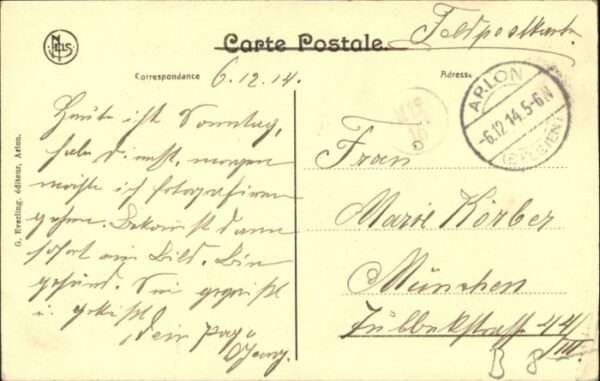 Feldpostkarte
Nels
Carte Postale.
Correspondance
Adresse
6.12.14.
ARLON
-6.12.14.5-6N
(BELGIEN)
G. Everling, éditeur, Arlon.
Heute ist Sonntag,
habe Dienst, morgen
möchte ich fotografieren
gehen. Bekommst dann
sofort ein Bild. Bin
gesund. Sei gegrüßt
u. geküßt
dein Papa
Georg.
Frau
Marie Körber
München
44/
III.
B 8